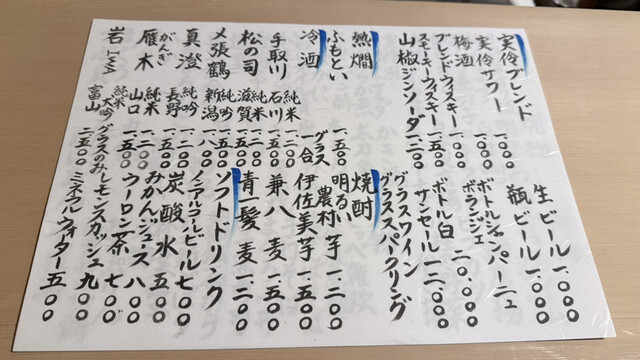 実伶ブレンド 一、〇〇〇
実伶サワー 一、〇〇〇
梅酒 一、〇〇〇
ブレンドウィスキー 一、〇〇〇
スモーキーウィスキー 一、五〇〇
山椒ジンソーダ 一、二〇〇
熱燗
ふもとい 一、五〇〇
冷酒 グラス 一合
手取川 純米 石川 一、五〇〇
松の司 純米 滋賀 一、二〇〇
〆張鶴 純吟 新潟 一、五〇〇
真澄 純吟 長野 一、二〇〇
雁木 がんぎ 純米 山口 一、二〇〇
岩 IWA 純米大吟 富山 グラスのみ 二、五〇〇
生ビール 一、〇〇〇
瓶ビール 一、〇〇〇
ボトルシャンパーニュ
ボランジェ 二〇、〇〇〇
ボトル白
サンセール 一二、〇〇〇
グラスワイン
グラススパークリング
焼酎
明るい農村 芋 一、二〇〇
伊佐美 芋 一、五〇〇
兼八 麦 一、五〇〇
青一髪 麦 一、二〇〇
ソフトドリンク
ノンアルコールビール 七〇〇
炭酸水 五〇〇
みかんジュース 八〇〇
ウーロン茶 七〇〇
レモンスカッシュ 九〇〇
ミネラルウォーター 五〇〇